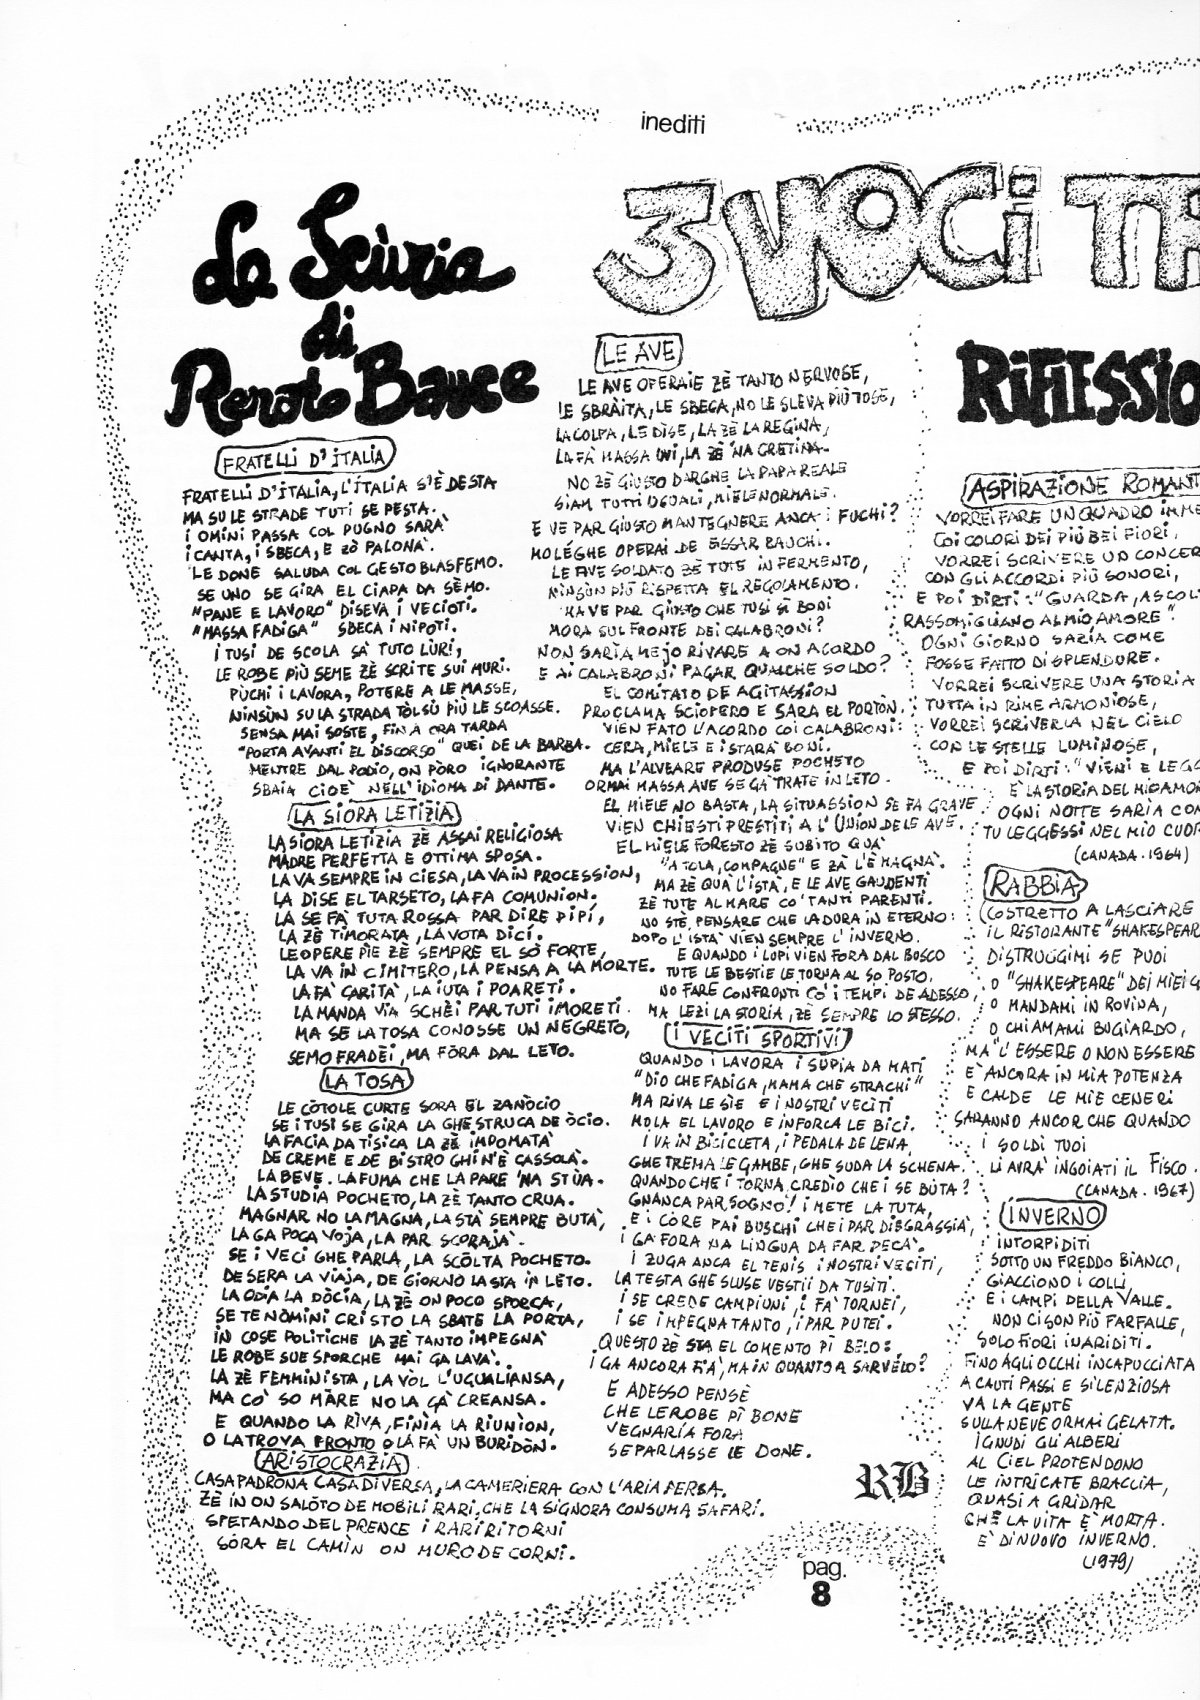 inediti
3 VOCI TR
La Sciùria
di
Renato Bauce
FRATELLI D'ITALIA
FRATELLI D'ITALIA, L'ITALIA S'È DESTA
MA SU LE STRADE TUTI SE PESTA.
I OMINI PASSA COL PUGNO SARÀ
I CANTA, I SBECA, E ZÒ PALONÀ.
LE DONE SALUDA COL GESTO BLASFEMO.
SE UNO SE GIRA EL CIAPA DA SÈMO.
"PANE E LAVORO" DISEVA I VECIOTI.
"MASSA FADIGA" SBECA I NIPOTI.
I TUSI DE SCOLA SÀ TUTO LÙRI,
LE ROBE PIÙ SEME ZÈ SCRITE SUI MURI.
PÙCHI I LAVORA, POTERE A LE MASSE,
NINSÙN SU LA STRADA TÒL SÙ PIÙ LE SCOASSE.
SENSA MAI SOSTE, FIN A ORA TARDA
"PORTA AVANTI EL DISCORSO" QUEI DE LA BARBA.
MENTRE DAL PODIO, ON PÒRO IGNORANTE
SBAIA CIOÈ NELL'IDIOMA DI DANTE.
LA SIORA LETIZIA
LA SIORA LETIZIA ZÈ ASSAI RELIGIOSA
MADRE PERFETTA E OTTIMA SPOSA.
LA VA SEMPRE IN CIESA, LA VA IN PROCESSION,
LA DISE EL TARSETO, LA FA COMUNION.
LA SE FÀ TUTA ROSSA PAR DIRE PIPÍ,
LA ZÈ TIMORATA, LA VOTA DICÍ.
LE OPERE PIE ZÈ SEMPRE EL SÓ FORTE,
LA VA IN CIMITERO, LA PENSA A LA MORTE.
LA FÀ CARITÀ, LA IUTA I POARETI.
LA MANDA VÍA SCHÈI PAR TUTI I MORETI.
MA SE LA TOSA CONOSSE UN NEGRETO,
SEMO FRADEI, MA FÒRA DAL LETO.
LA TOSA
LE CÒTOLE CURTE SORA EL ZANÒCIO
SE I TUSI SE GIRA LA GHE STRUCA DE ÒCIO.
LA FACIA DA TISICA LA ZÈ IMPOMATÀ
DE CREME E DE BISTRO GHI N'È CASSOLÀ.
LA BEVE. LA FUMA CHE LA PARE 'NA STÙA.
LA STUDIA POCHETO, LA ZÈ TANTO CRUA.
MAGNAR NO LA MAGNA, LA STÀ SEMPRE BUTÀ,
LA GA POCA VOJA, LA PAR SCORAJÀ.
SE I VECI GHE PARLA, LA SCÒLTA POCHETO.
DE SERA LA VIAJA, DE GIORNO LA STA IN LETO.
LA ODIA LA DÒCIA, LA ZÈ ON POCO SPORCA,
SE TE NÒMINI CRISTO LA SBATE LA PORTA,
IN COSE POLITICHE LA ZÈ TANTO IMPEGNÀ
LE ROBE SUE SPORCHE MAI GA LAVÀ.
LA ZÈ FEMMINISTA, LA VÒL L'UGUALIANSA,
MA CO' SO MÀRE NO LA GÀ CREANSA.
E QUANDO LA RÌVA, FINÌA LA RIUNÌON,
O LA TROVA PRONTO O LA FÀ UN BURIDÒN.
ARISTOCRAZIA
CASA PADRONA CASA DIVERSA, LA CAMERIERA CON L'ARIA PERSA.
ZÈ IN ON SALÒTO DE MOBILI RARI, CHE LA SIGNORA CONSUMA SAFARI.
SPETANDO DEL PRENCE I RARI RITORNI
SÓRA EL CAMÌN ON MURO DE CORNI.
LE AVE
LE AVE OPERAIE ZÈ TANTO NERVOSE,
LE SBRÀITA, LE SBECA, NO LE SLEVA PIÙ TOSE,
LA COLPA, LE DISE, LA ZÈ LA REGINA,
LA FÀ MASSA UVI, LA ZÈ 'NA CRETINA.
NO ZÈ GIUSTO DARGHE LA PAPA REALE
SIAM TUTTI UGUALI, MIELE NORMALE.
E VE PAR GIUSTO MANTEGNERE ANCA I FUCHI?
MOLÉGHE OPERAI DE ESSAR BAUCHI.
LE AVE SOLDATO ZÈ TUTE IN FERMENTO,
NINSÙN PIÙ RISPETTA EL REGOLAMENTO.
MA VE PAR GIUSTO CHE TUSI SÌ BONI
MORA SUL FRONTE DEI CALABRONI?
NON SARÌA MEJO RIVARE A ON ACORDO
E AI CALABRONI PAGAR QUALCHE SOLDO?
EL COMITATO DE AGITASSION
PROCLAMA SCIOPERO E SARA EL PORTÒN.
VIEN FATO L'ACORDO COI CALABRONI:
CERA, MIELE E I STARÀ BONI.
MA L'ALVEARE PRODUSE POCHETO
ORMAI MASSA AVE SE GÀ TRATE IN LETO.
EL MIELE NO BASTA, LA SITUASSION SE FA GRAVE
VIEN CHIESTI PRESTITI A L'UNION DE LE AVE.
EL MIELE FORESTO ZÈ SUBITO QUÀ
"A TOLA, COMPAGNE" E ZÀ L'È MAGNÀ.
MA ZÈ QUÀ L'ISTÀ, E LE AVE GAUDENTI
ZÈ TUTE AL MARE CO' TANTI PARENTI.
NO STÈ PENSARE CHE LA DURA IN ETERNO:
DOPO L'ISTÀ VIEN SEMPRE L'INVERNO.
E QUANDO I LUPI VIEN FORA DAL BOSCO
TUTE LE BESTIE LE TORNA AL SO POSTO.
NO FARE CONFRONTI CO' I TEMPI DE ADESSO,
MA LEZI LA STORIA, ZÈ SEMPRE LO STESSO.
I VECITI SPORTIVI
QUANDO I LAVORA I SUPIA DA MATI
"DIO CHE FADIGA, MAMA CHE STRACHI"
MA RIVA LE SIE E I NOSTRI VECITI
MOLA EL LAVORO E INFORCA LE BICI.
I VA IN BICICLETA, I PEDALA DE LENA,
GHE TREMA LE GAMBE, GHE SUDA LA SCHENA.
QUANDO CHE I TORNA, CREDÌO CHE I SE BUTA?
GNANCA PAR SOGNO! I METE LA TUTA,
E I CÓRE PAI BUSCHI CHE I PAR DISGRASSIÀ,
I GA FORA NA LINGUA DA FAR PECÀ.
I ZUGA ANCA EL TENIS I NOSTRI VECITI,
LA TESTA GHE SLUSE VESTII DA TUSITI.
I SE CREDE CAMPIONI, I FÀ TORNEI,
I SE IMPEGNA TANTO, I PAR PUTEI.
QUESTO ZÈ STA EL COMENTO PÌ BELO:
I GA ANCORA FIÀ, MA IN QUANTO A SARVÈLO?
E ADESSO PENSÈ
CHE LE ROBE PÌ BONE
VEGNARÌA FORA
SE PARLASSE LE DONE.
RB
RIFLESSIO
ASPIRAZIONE ROMANT
VORREI FARE UN QUADRO IMME
COI COLORI DEI PIÙ BEI FIORI,
VORREI SCRIVERE UN CONCER
CON GLI ACCORDI PIÙ SONORI,
E POI DIRTI: "GUARDA, ASCOL
RASSOMIGLIANO AL MIO AMORE".
OGNI GIORNO SARIA COME
FOSSE FATTO DI SPLENDORE.
VORREI SCRIVERE UNA STORIA
TUTTA IN RIME ARMONIOSE,
VORREI SCRIVERLA NEL CIELO
CON LE STELLE LUMINOSE,
E POI DIRTI: "VIENI E LEGG
È LA STORIA DEL MIO AMOR
OGNI NOTTE SARIA COM
TU LEGGESSI NEL MIO CUOR
(CANADA - 1964)
RABBIA
(COSTRETTO A LASCIARE
IL RISTORANTE "SHAKESPEAR
DISTRUGGIMI SE PUOI
O "SHAKESPEARE" DEI MIEI G
O MANDAMI IN ROVINA,
O CHIAMAMI BUGIARDO,
MA "L'ESSERE O NON ESSERE
È ANCORA IN MIA POTENZA
E CALDE LE MIE CENERI
SARANNO ANCOR CHE QUANDO
I SOLDI TUOI
LI AVRÀ INGOIATI IL FISCO.
(CANADA - 1967)
INVERNO
INTORPIDITI
SOTTO UN FREDDO BIANCO,
GIACCIONO I COLLI
E I CAMPI DELLA VALLE.
NON CI SON PIÙ FARFALLE,
SOLO FIORI INARIDITI.
FINO AGLI OCCHI INCAPUCCIATA
A CAUTI PASSI E SILENZIOSA
VA LA GENTE
SULLA NEVE ORMAI GELATA.
IGNUDI GLI ALBERI
AL CIEL PROTENDONO
LE INTRICATE BRACCIA,
QUASI A GRIDAR
CHE LA VITA È MORTA.
È DI NUOVO INVERNO.
(1979)
pag.
8